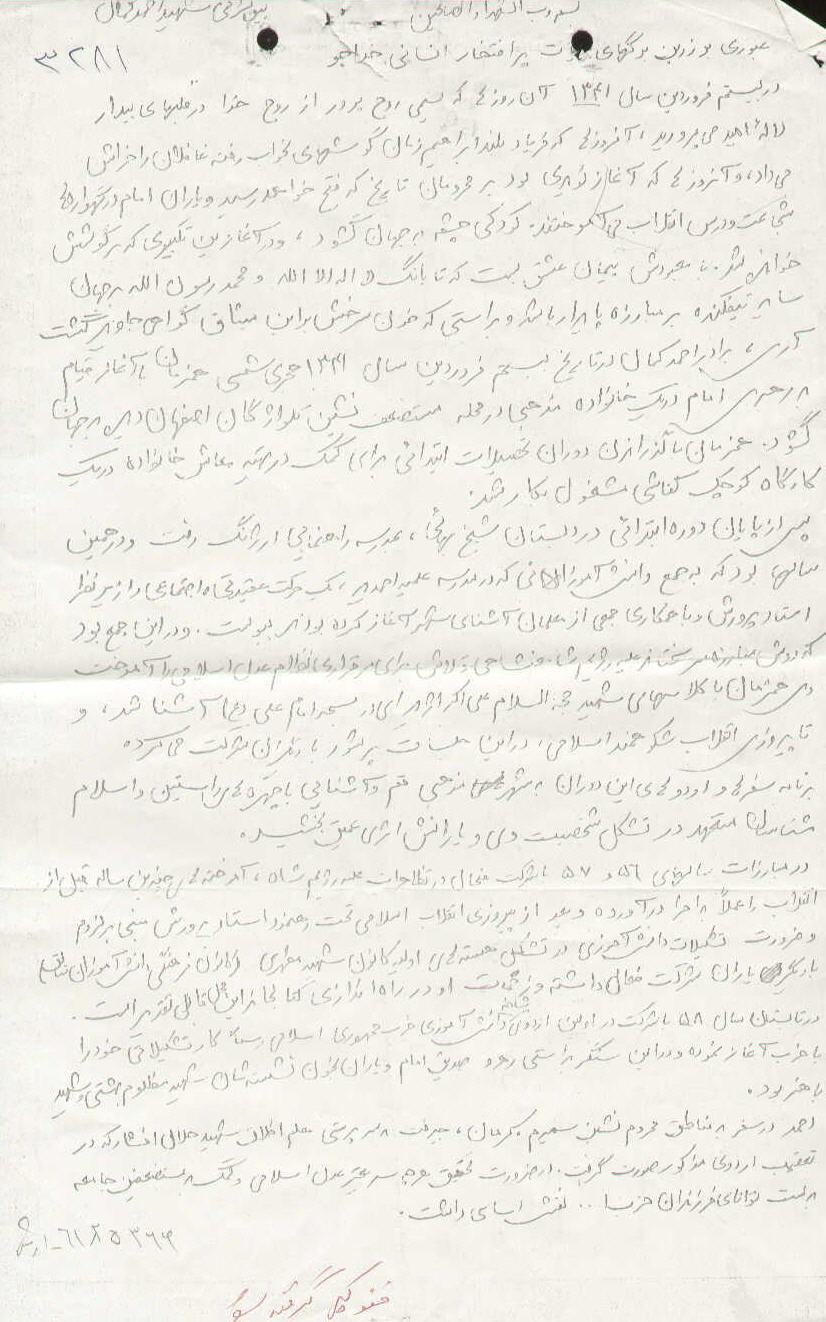 بسم رب الشهداء و الصالحین
بیوگرافی شهید احمد کمال
عبوری بر زرین برگهای حیات پر افتخار انسانی خداجو
۳۲۸۱
در بیستم فروردین سال ۱۳۴۱ آن روزها که نسیمی روح پرور از روح خدا در قلبهای بیدار
لاله امید می پرورید، آنروزها که فریاد بلند ابراهیم زمان گوشهای بخواب رفته غافلان را خراش
می داد، و آنروزها که آغاز نویدی بود بر محرومان تاریخ که فتح خواهد رسید و یاران امام در گهواره ها
شجاعت و درس انقلاب می آموختند. کودکی چشم به جهان گشود، و در آغازین تکبیری که بر گوشش
خوانده شد. با معبودش پیمان عشق بست که تا بانگ لا اله الا الله و محمد رسول الله بر جهان
سایه نیفکنده بر مبارزه پایدار باشد و براستی که خون سرخش بر این میثاق گواهی جاوید گشت
آری، برادر احمد کمال در تاریخ بیستم فروردین سال ۱۳۴۱ هجری شمسی همزمان با آغاز قیام
به رهبری امام در یک خانواده مذهبی در محله مستضعف نشین اصفهان دیده به جهان
گشود. همزمان با گذراندن دوران تحصیلات ابتدائی برای کمک در تهیه معاش خانواده در یک
کارگاه کوچک کفاشی مشغول بکار شد.
پس از پایان دوره ابتدائی در دبستان شیخ بهائی، به مدرسه راهنمایی ارژنگ رفت و در همین
سالها بود که به جمع دانش آموزانی که در مدرسه احمدیه، یک حرکت عقیدتی اجتماعی را زیر نظر
استاد پرورش و با همکاری جمعی از معلمان آشنای شهر آغاز کرده بودند پیوست. و در این جمع بود
که روش مبارزه سرسخت علیه رژیم شاه و تلاش برای برقراری نظام عدل اسلامی را آموخت
وی همزمان با کلاسهای شهید حجة السلام علی اکبر اژه ای در مسجد امام علی (ع) آشنا شد، و
تا پیروزی انقلاب شکوهمند اسلامی، در این جلسات پرشور با دیگران شرکت می کرد.
برنامه سفرها و اردوهای این دوران به شهر مذهبی قم و آشنایی با چهره های راستین و اسلام
شناسان متعهد در تشکل شخصیت وی و یارانش اثری عمیق بخشید.
در مبارزات سالهای ۵۶ و ۵۷ با شرکت فعال در تظاهرات علیه رژیم شاه، آموخته های چندین ساله قبل از
انقلاب را عملاً به اجرا درآورده و بعد از پیروزی انقلاب اسلامی تحت رهنمود استاد پرورش مبنی بر لزوم
و ضرورت تشکیلات دانش آموزی در تشکل هسته های اولیه کانون شهید مطهری (کانون فرهنگی دانش آموزان
با دیگر یاران شرکت فعال داشته و زحمات او در راه اندازی کتابخانه این محل قابل تقدیر است.
در تابستان سال ۵۸ با شرکت در اولین اردوی دانش آموزی حزب جمهوری اسلامی رسماً کار تشکیلاتی خود را
با حزب آغاز نموده و در این سنگر براستی رهرو صدیق امام و یاران بخون نشسته شان شهید مظلوم بهشتی و شهید
باهنر بود.
احمد در سفر به مناطق محروم نشین سمیرم و کرمان، جیرفت به سرپرستی معلم اخلاق شهید جلال افشار که در
تعقیب اردوی مذکور صورت گرفت. از ضرورت تحقق هر چه سریعتر عدل اسلامی و کمک به مستضعفین جامعه
به دست توانای فرزندان حزب ا... نقش اساسی داشت.
فتوکپی گرفته شد